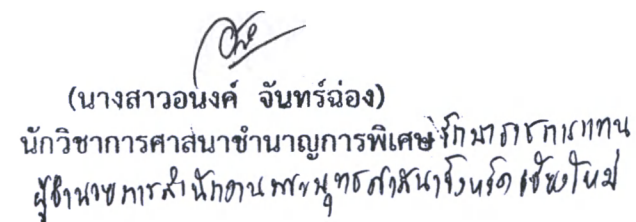 (นางสาวอนงค์ จันทร์ฉ่อง)
นักวิชาการศาสนาชำนาญการพิเศษ รักษาราชการแทน
ผู้อำนวยการสำนักงานพระพุทธศาสนาจังหวัดเชียงใหม่